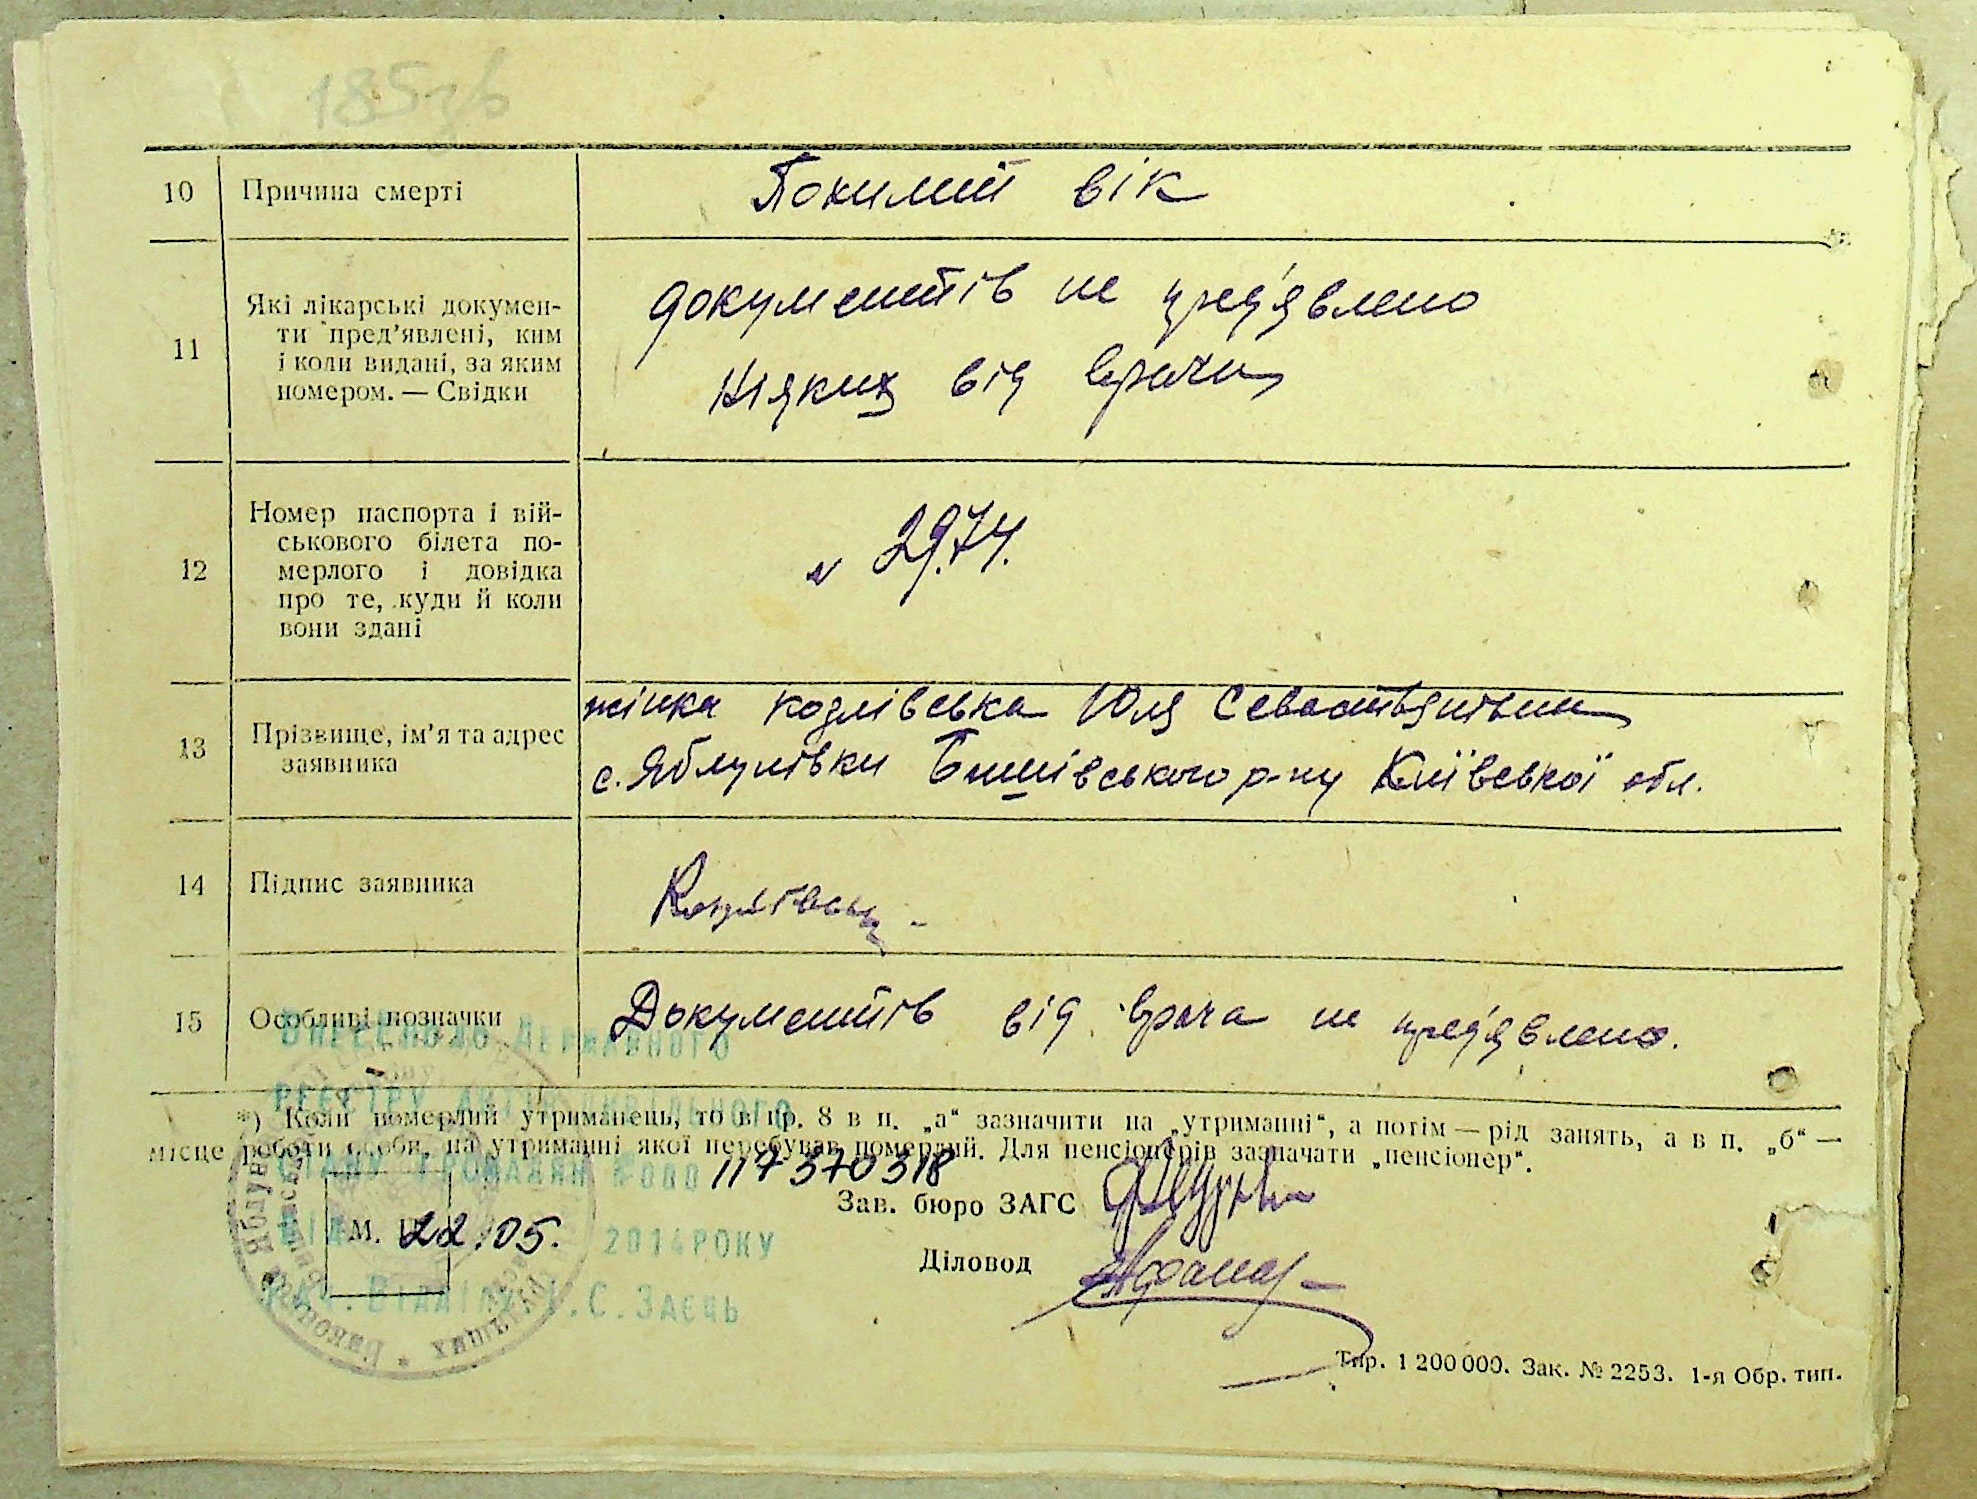 185зв
10 Причина смерті Похилий вік
11 Які лікарські докумен-
ти пред'явлені, ким
і коли видані, за яким
номером. — Свідки
документів не пред'явлено
ніяких від врача
12 Номер паспорта і вій-
ськового білета по-
мерлого і довідка
про те, куди й коли
вони здані
2974.
13 Прізвище, ім'я та адрес
заявника
жінка козлівська Юля
с. Яблунівки Бишівського р-ну Київської обл.
14 Підпис заявника
15 Особливі позначки Документів від врача не пред'явлено.
Внесено до Державного
реєстру актів цивільного
стану громадян №000 117370318
від 22.05. 2014 року
Нач. Відділу С. Заєць
*) Коли померлий утриманець, то в пр. 8 в п. „а“ зазначити на „утриманні“, а потім — рід занять, а в п. „б“ —
місце роботи особи, на утриманні якої перебував померлий. Для пенсіонерів зазначати „пенсіонер“.
Зав. бюро ЗАГС
М. П.
Діловод
Тир. 1 200 000. Зак. № 2253. 1-я Обр. тип.